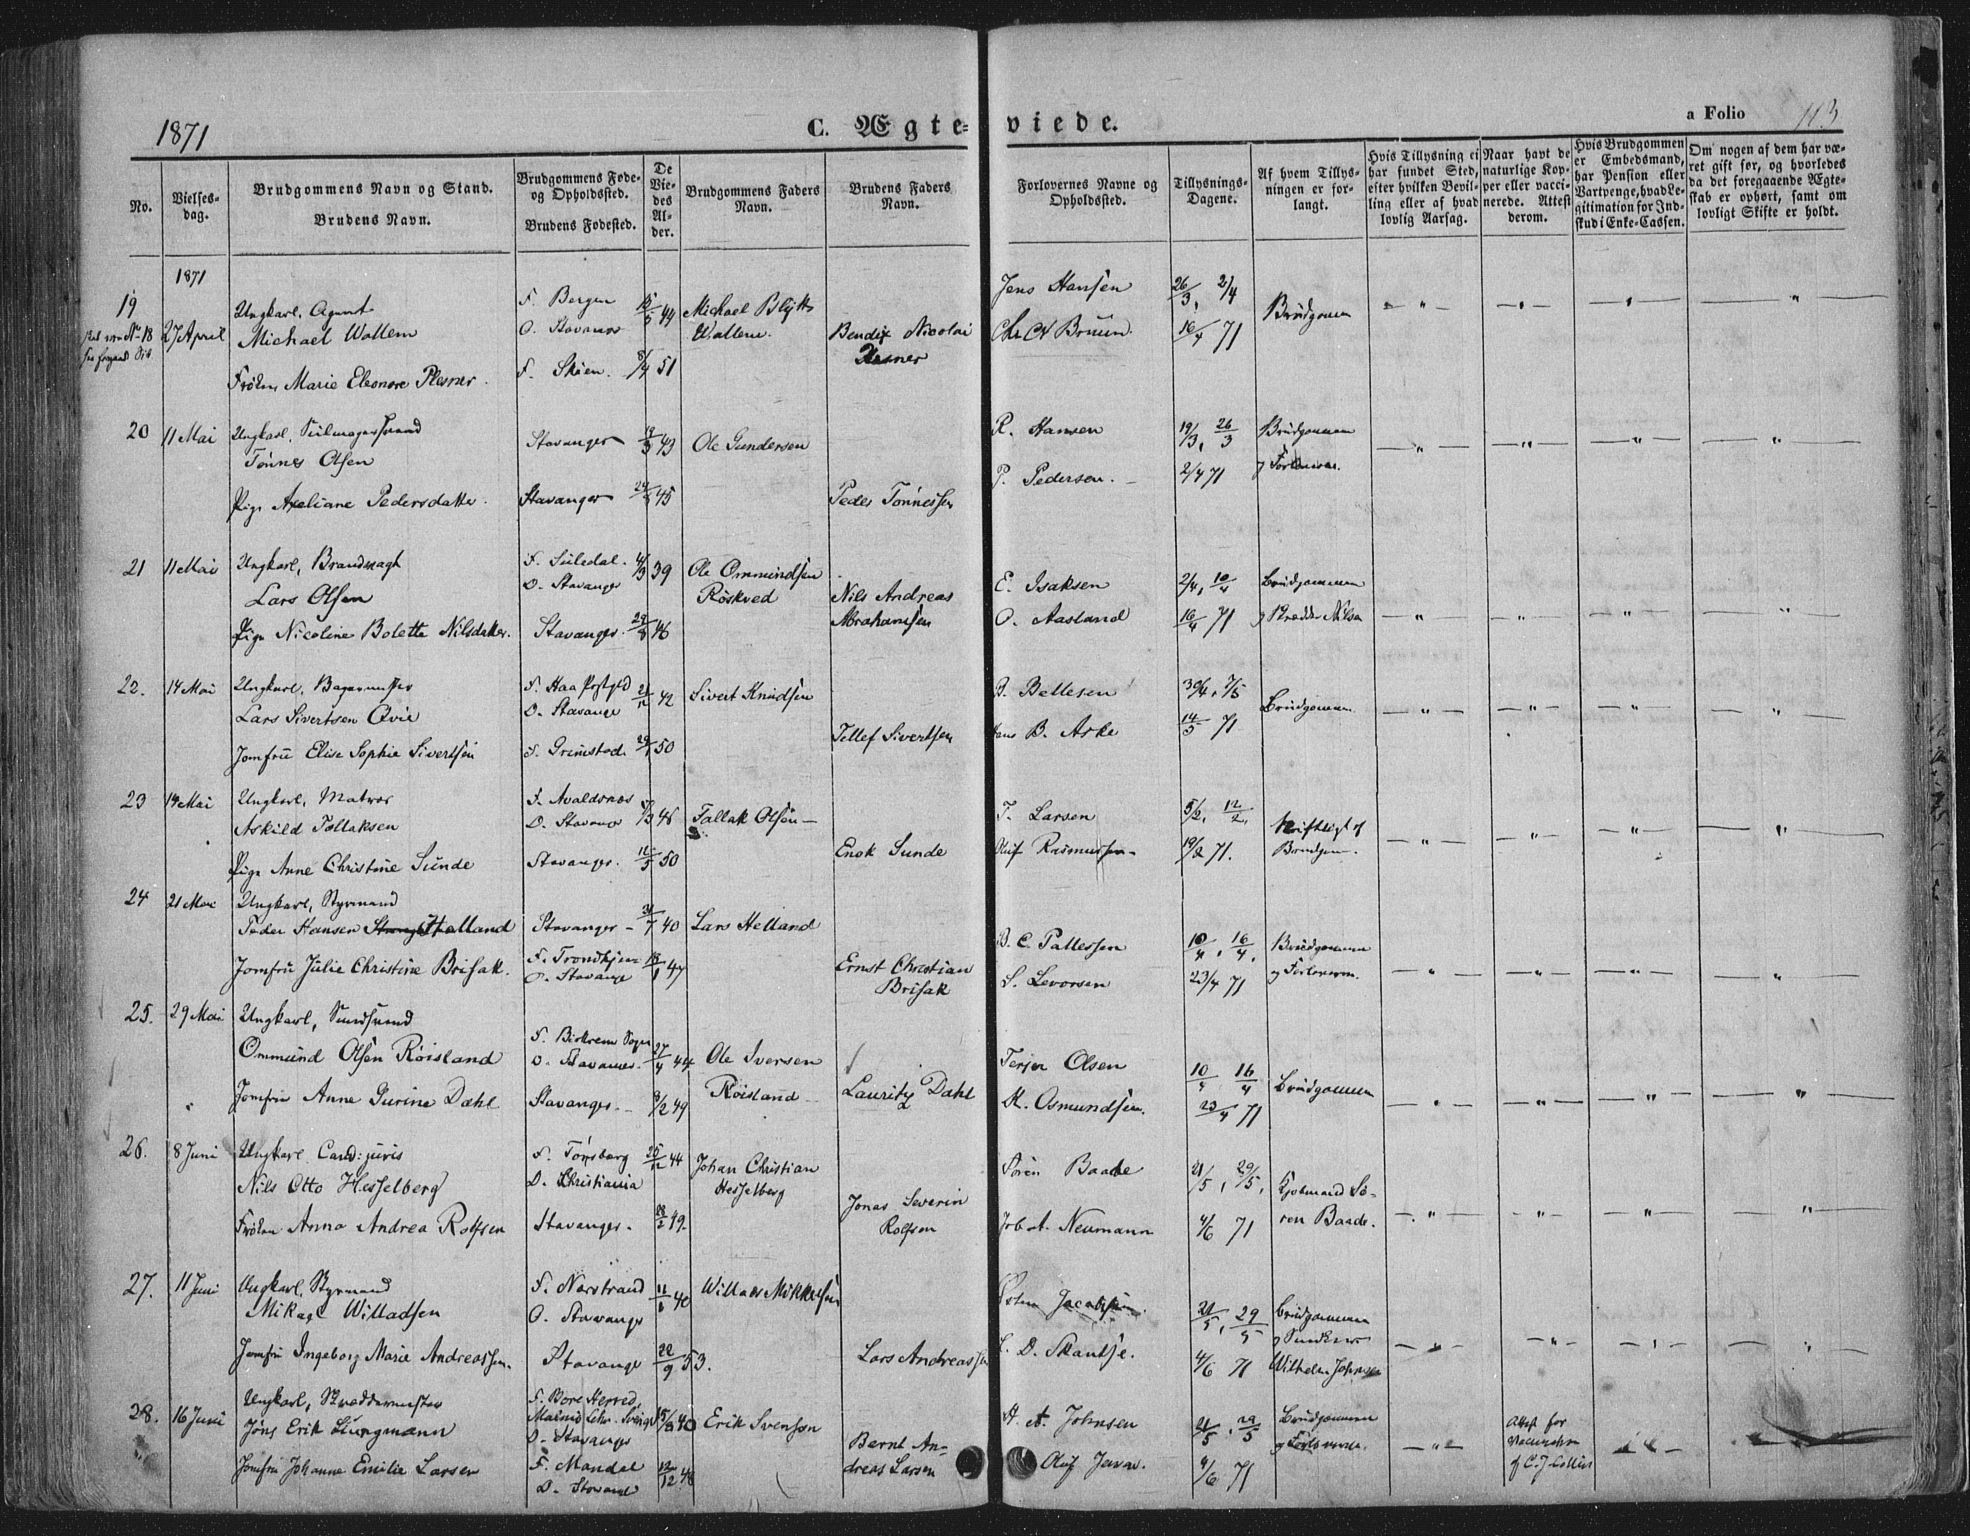 1871
C. Ægte-
viede.
a Folio 113
No.
Vielses-
dag.
Brudgommens Navn og Stand.
Brudens Navn.
Brudgommens Føde-
og Opholdssted.
Brudens Fødested.
De
Vie-
des
Al-
der.
Brudgommens Faders
Navn.
Brudens Faders
Navn.
Forlovernes Navne og
Opholdssted.
Tillysnings-
Dagene.
Af hvem Tillys-
ningen er for-
langt.
Hvis Tillysning ei
har fundet Sted,
efter hvilken Bevil-
ling eller af hvad
lovlig Aarsag.
Naar havt de
naturlige Kop-
per eller vacci-
nerede. Attest
derom.
Hvis Brudgommen
er Embedsmand,
har Pension eller
Vartpenge, hvad Le-
gitimation for Ind-
skud i Enke-Cassen.
Om nogen af dem har væ-
ret gift før, og hvorledes
da det foregaaende Ægte-
skab er ophørt, samt om
lovligt Skifte er holdt.
1871
19
27 April
Ungkarl, Agent
Michael Wallem
Frøken Marie Eleonore Plesner
F. Bergen
O. Stavanger
F. Skien.
49
8/4 51
Michael Blytt
Wallem.
Bendix Nicolai
Plesner
Jens Hansen
Chr. Bruun.
26/3, 2/4
16/4 71
Brudgommen
20
11 Mai
Ungkarl, Seilmagersvend
Tønnes Olsen
Pige Axeliane Pedersdatter.
Stavanger
Stavanger
43
45
Ole Gundersen
Peder Tønnessen
R. Hansen
P. Pedersen.
19/3, 26/3
2/4 71
Brudgommen
og Forloverne.
21
11 Mai
Ungkarl, Brandvagt
Lars Olsen
Pige Nicoline Bolette Nilsdatter.
F. Suledal.
O. Stavanger
Stavanger.
39
46
Ole Ommundsen
Røskved
Nils Andreas
Abrahamsen
E. Isaksen
O. Aasland
2/4, 10/4
16/4 71
Brudgommen
22.
14 Mai
Ungkarl, Bagermester
Lars Sivertsen Qvie
Jomfru Elise Sophie Sivertsen
F. Haa Prstgld
O. Stavanger
F. Grimstad
21/12 42
50
Sivert Knudsen
Tellef Sivertsen
B. Bellesen
Hans B. Aske
30/4, 7/5
14/5 71
Brudgommen
23
14 Mai
Ungkarl, Matros
Askild Tollaksen
Pige Anne Christine Sunde
F. Avaldsnæs
O. Stavanger
Stavanger.
46
50
Tallak Olsen
Enok Sunde
T. Larsen
Oluf Rasmussen
5/2, 12/2,
19/2 71.
Skriftligt af
Brudgom.
24
21 Mai
Ungkarl, Styrmand
Peder Hansen Helland
Jomfru Julie Christine Brisak.
Stavanger
F. Trondhjem
O. Stavanger
40
47
Lars Helland
Ernst Christian
Brisak
B. C. Pallessen
S. Levorsen
10/4, 16/4,
23/4 71
Brudgommen
og Forloverne.
25.
29 Mai
Ungkarl,
Ommund Olsen Røisland
Jomfru Anne Gurine Dahl
F. Birkrem Sogn
O. Stavanger.
Stavanger.
27/4 44
8/2 49
Ole Iversen
Røisland
Lauritz Dahl
Terjer Olsen
M. Osmundsen.
10/4 16/4
23/4 71
Brudgommen
26.
8 Juni
Ungkarl Cand: juris
Nils Otto Hesselberg
Frøken Anna Andrea Rolfsen
F. Tønsberg
O. Christiania
Stavanger.
25/12 44
49.
Johan Christian
Hesselberg
Jonas Severin
Rolfsen
Søren Baade
Jacob A. Neumann
21/5, 29/5,
4/6 71
Kjøbmand Sø-
ren Baade.
27.
11 Juni
Ungkarl, Styrmand
Mikael Willadsen
Jomfru Ingeborg Marie Andreassen.
F. Nærstrand
O. Stavanger
Stavanger
40
22/9 53.
Willads Mikkelsen
Lars Andreassen
Jacobsen
L. D. Skantse.
21/5, 29/5
4/6 71
Brudgommen
og
Wilhelm Johnsen
28.
16 Juni
Ungkarl, Skræddermester
Jøns Erik Ljungmann
Jomfru Johanne Emilie Larsen
F. Bore Herred,
Malmø Lehn. Sverige
O. Stavanger
F. Mandal
O. Stavanger
40
12/12 48
Erik Svensson
Bernt An-
dreas Larsen
H. A. Johnsen
Oluf
21/5, 29/5
4/6 71
Brudgommen
og Forloverne.
Attest for
Vaccination
af C. J. Collin